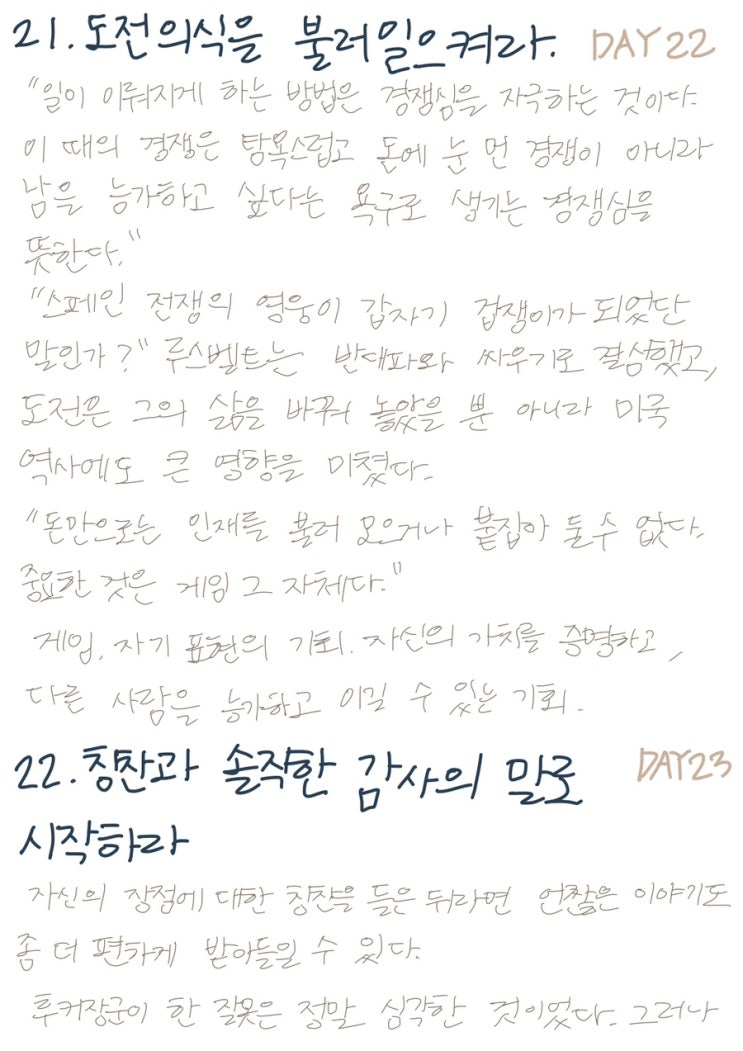 21. 도전의식을 불러일으켜라. DAY 22
"일이 이뤄지게 하는 방법은 경쟁심을 자극하는 것이다.
이 때의 경쟁은 탐욕스럽고 돈에 눈 먼 경쟁이 아니라
남을 능가하고 싶다는 욕구로 생기는 경쟁심을
뜻한다."
"스페인 전쟁의 영웅이 갑자기 겁쟁이가 되었단
말인가?" 루스벨트는 반대파와 싸우기로 결심했고,
도전은 그의 삶을 바꿔 놓았을 뿐 아니라 미국
역사에도 큰 영향을 미쳤다.
"돈만으로는 인재를 불러 모으거나 붙잡아 둘 수 없다.
중요한 것은 게임 그 자체다."
게임. 자기 표현의 기회. 자신의 가치를 증명하고,
다른 사람을 능가하고 이길 수 있는 기회.
22. 칭찬과 솔직한 감사의 말로 DAY23
시작하라
자신의 장점에 대한 칭찬을 들은 뒤라면 언짢은 이야기도
좀 더 편하게 받아들일 수 있다.
후커장군이 한 잘못은 정말 심각한 것이었다. 그러나